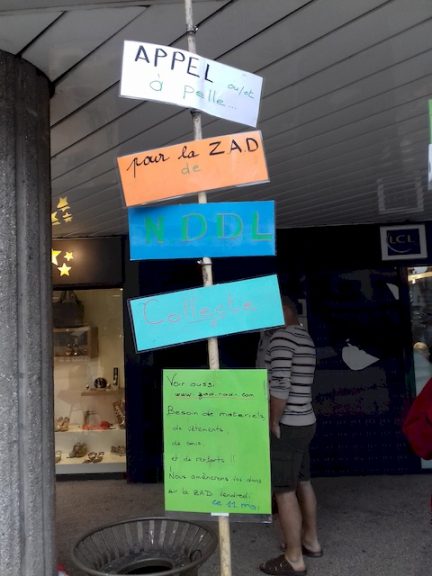 APPEL ou/et
à pelle...
pour la Z.A.D
de
N D D L
Collecte
LCL
Voir aussi
www.zad.nadir.com
Besoin de matériels
de vêtements
de
et de renforts !!
Nous amènerons les dons
sur la ZAD vendredi
ce 11 mai